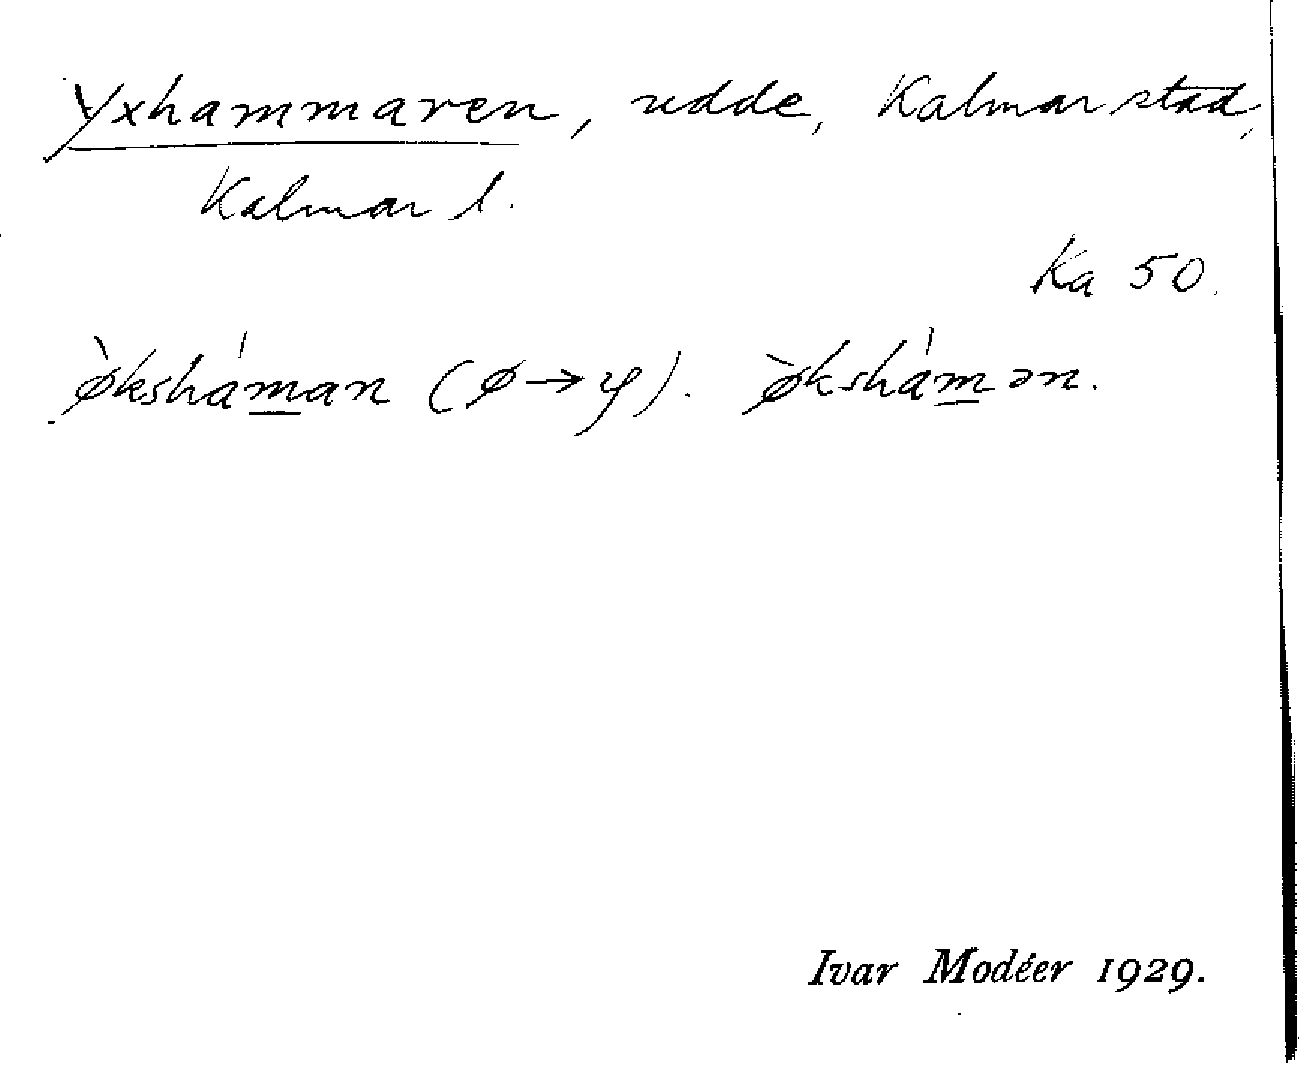 Yxhammaren, udde, Kalmar stad,
Kalmar l.
Ka 50.
ø̀kshá̍man (ø→y). ø̀kshá̍mən.
Ivar Modéer 1929.